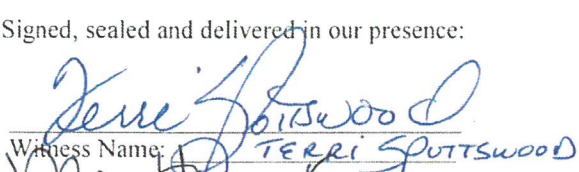 Signed, sealed and delivered in our presence:
Terri Spottswood
Witness Name: TERRI SPOTTSWOOD